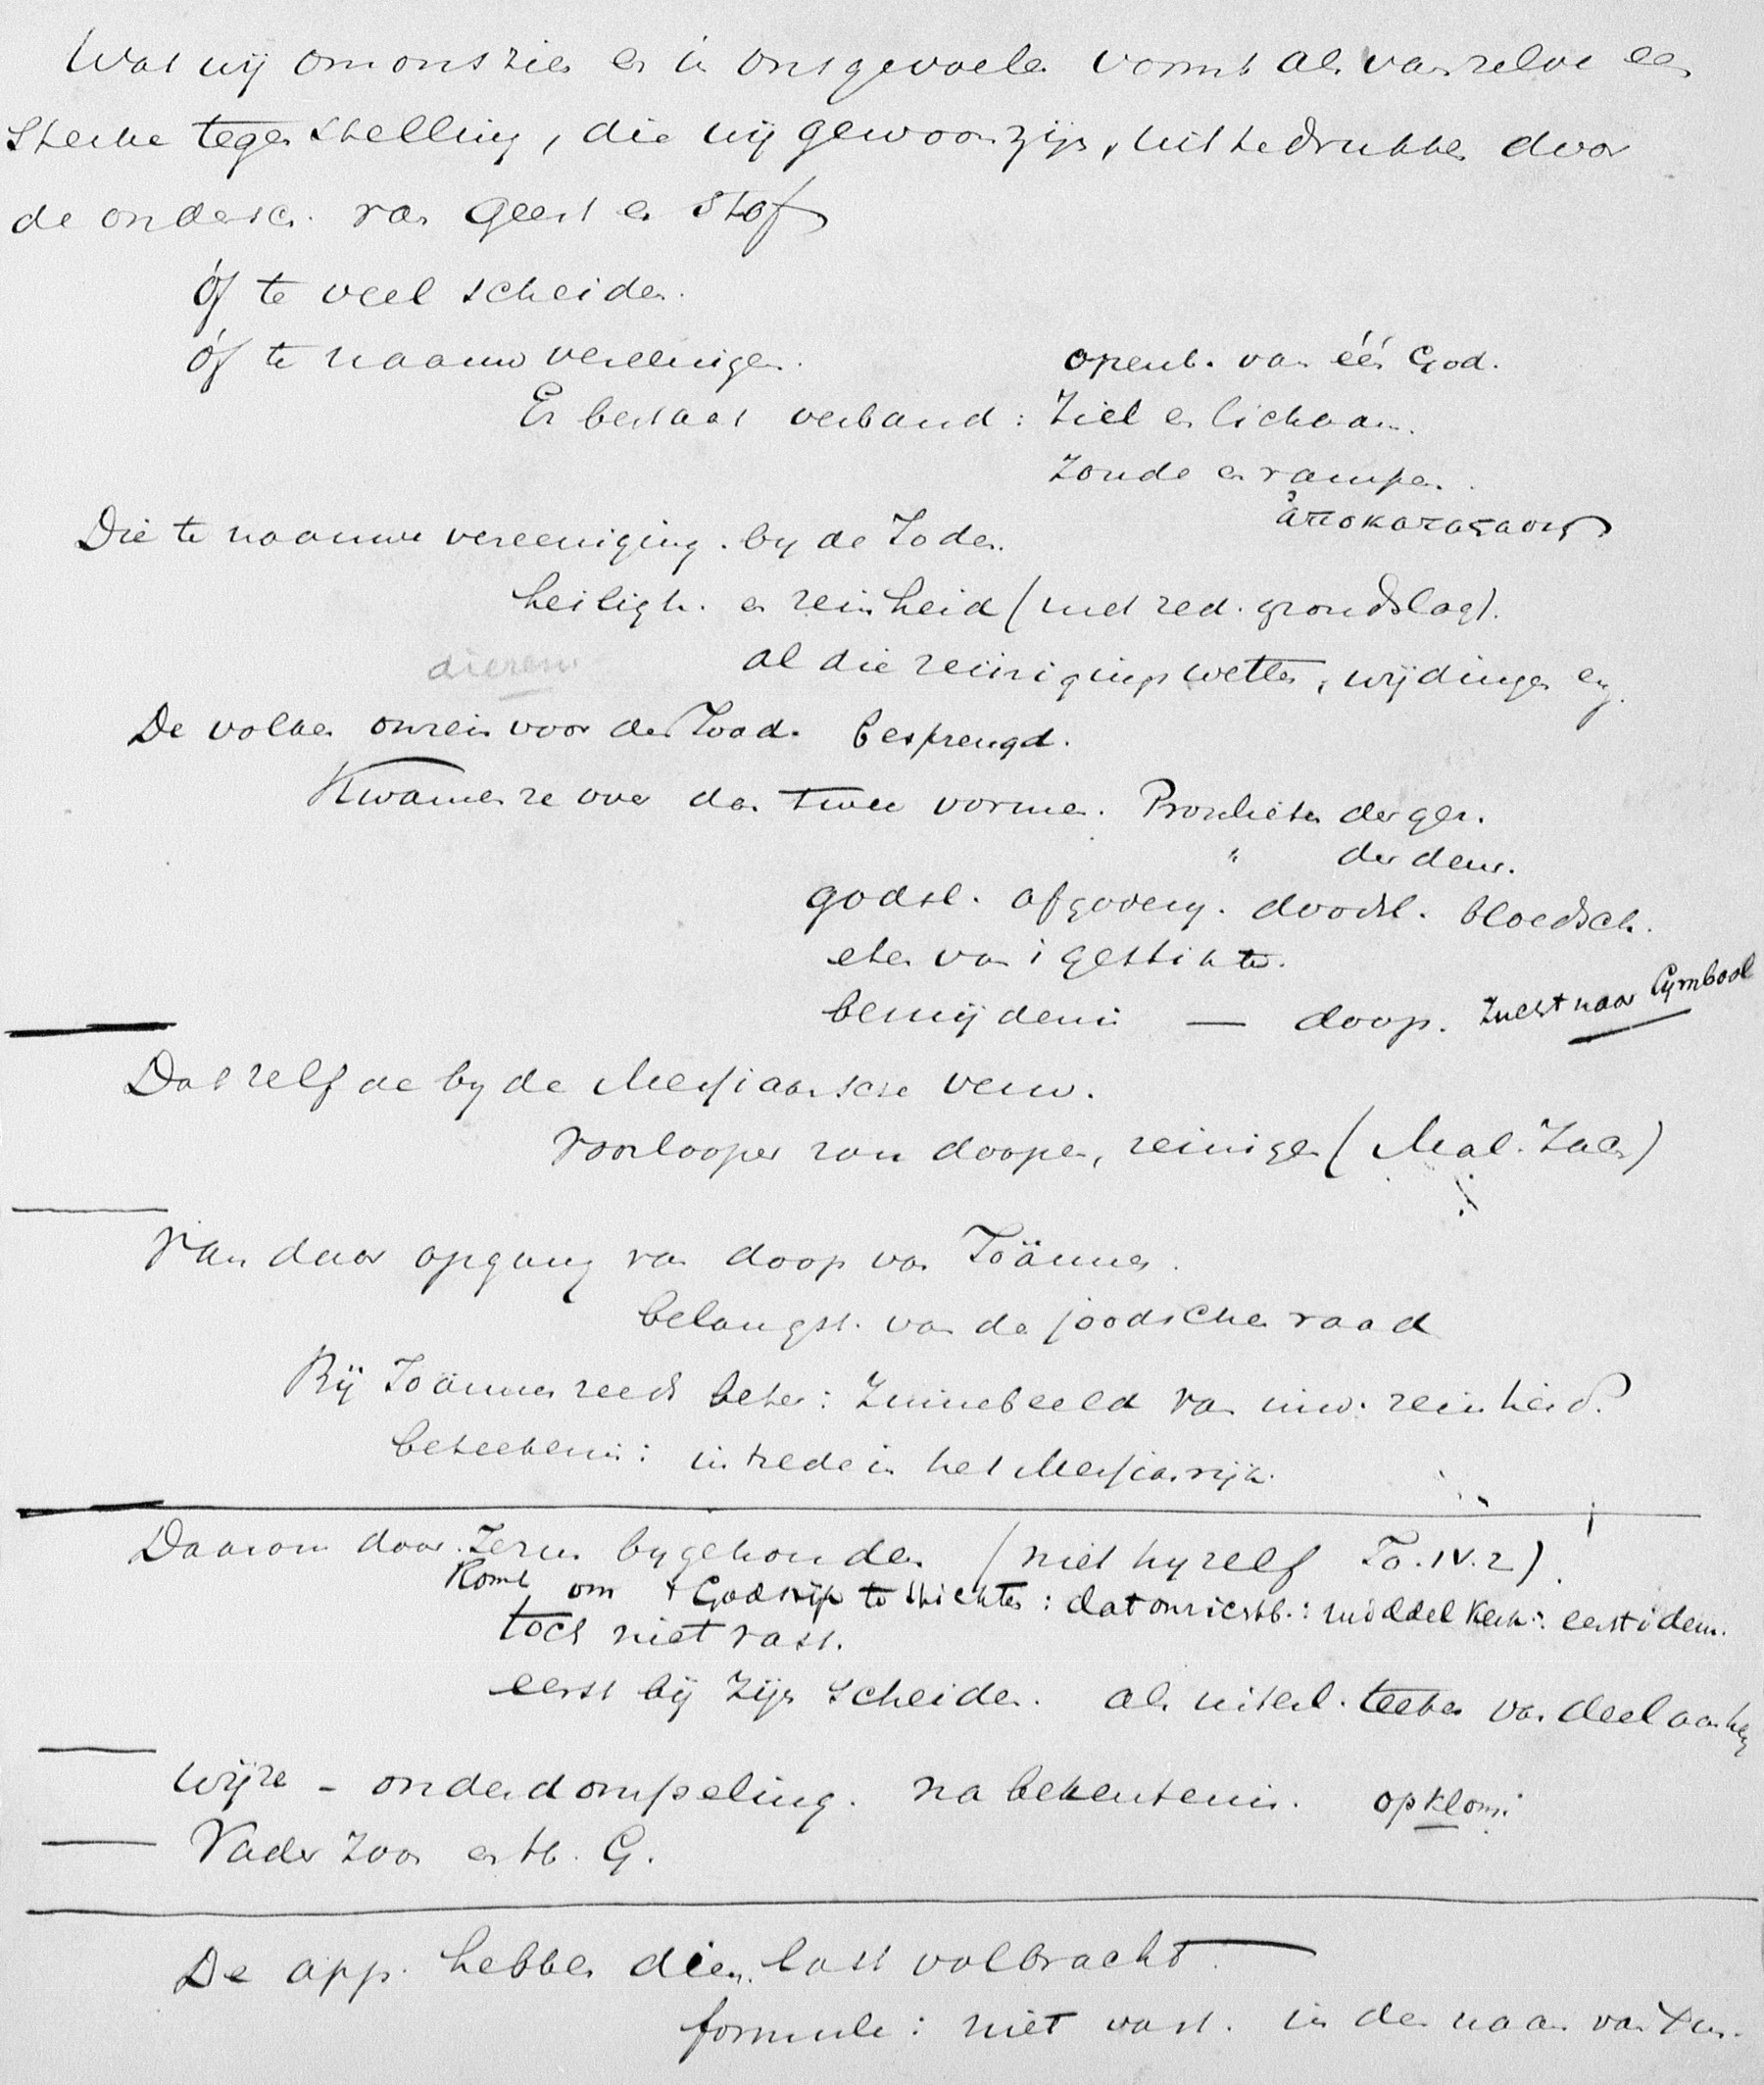 Wat wij om ons zien en in ons gevoelen vormt als van zelve een
sterke tegenstelling, die wij gewoon zijn, uit te drukken door
de ondersch. van Geest en Stof
óf te veel scheiden.
óf te naauw vereenigen.
openb. van één God.
Er bestaat verband: Ziel en lichaam.
Zonde en rampen.
ἀποκατάστασις
Die te naauwe vereeniging. by de Joden.
heiligh. en reinheid (met red. grondslag).
dieren
al die reinigingswetten, wijdingen enz.
De volken onrein voor den Jood. besprengd.
Kwamen ze over dan twee vormen. Proselieten der ger.
" der deur.
godsl. afgodery. doodsl. bloedsch.
eten van 't gestikte.
besnijdenis — doop. Zucht naar Symbool
Datzelfde by de Messiaansche verw.
Voorlooper zou doopen, reinigen (Mal. Zach)
Van daar opgang van doop van Joännes.
belangst. van de joodschen raad
Bij Joännes reeds beter: Zinnebeeld van inw. reinheid.
beteekenis: intrede in het Messiasrijk.
Daarom door Jezus bygehouden (niet hyzelf Jo. IV. 2).
Komt om 't Godsrijk te stichten: dat onzichtb.: middel Kerk: eerst idem.
toch niet vast.
eerst bij zijn scheiden. als uiterl. teeken van deelaanhg
Wijze - onderdompeling. na bekentenis. opklom:
Vader Zoon en H. G.
De app. hebben dien last volbracht.
formule: niet vast. in den naam van Xus.